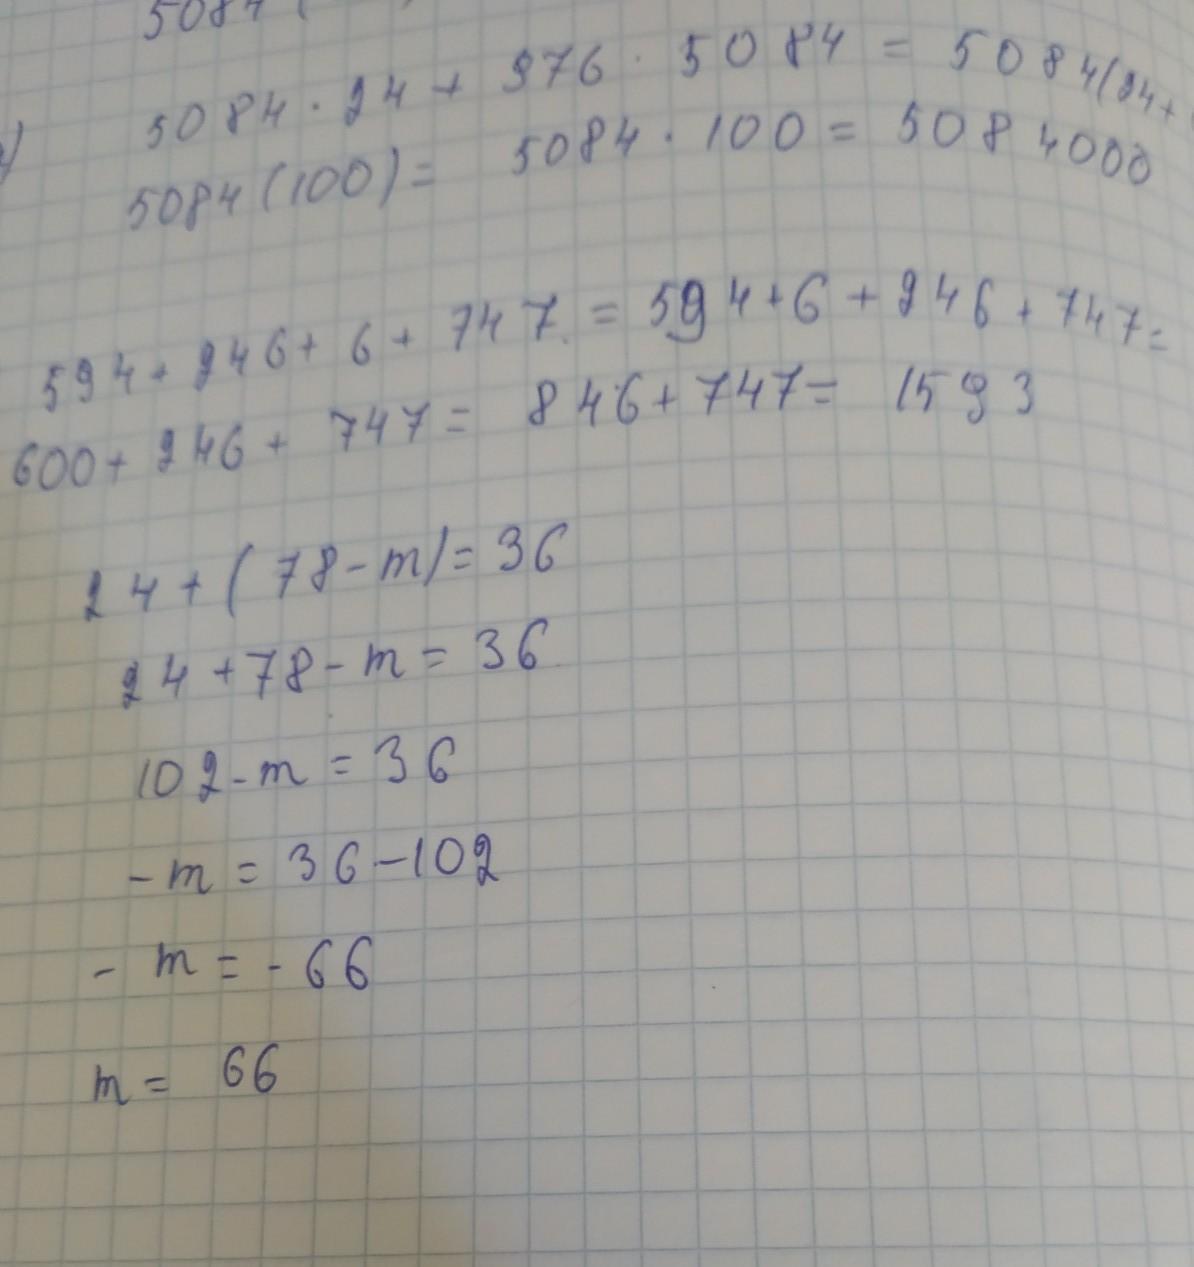 5084 (
5084 · 24 + 976 · 5084 = 5084(24+
5084(100) = 5084 · 100 = 5084000
594 + 246 + 6 + 747 = 594 + 6 + 246 + 747 =
600 + 246 + 747 = 846 + 747 = 1593
24 + (78 - m) = 36
24 + 78 - m = 36
102 - m = 36
- m = 36 - 102
- m = - 66
m = 66